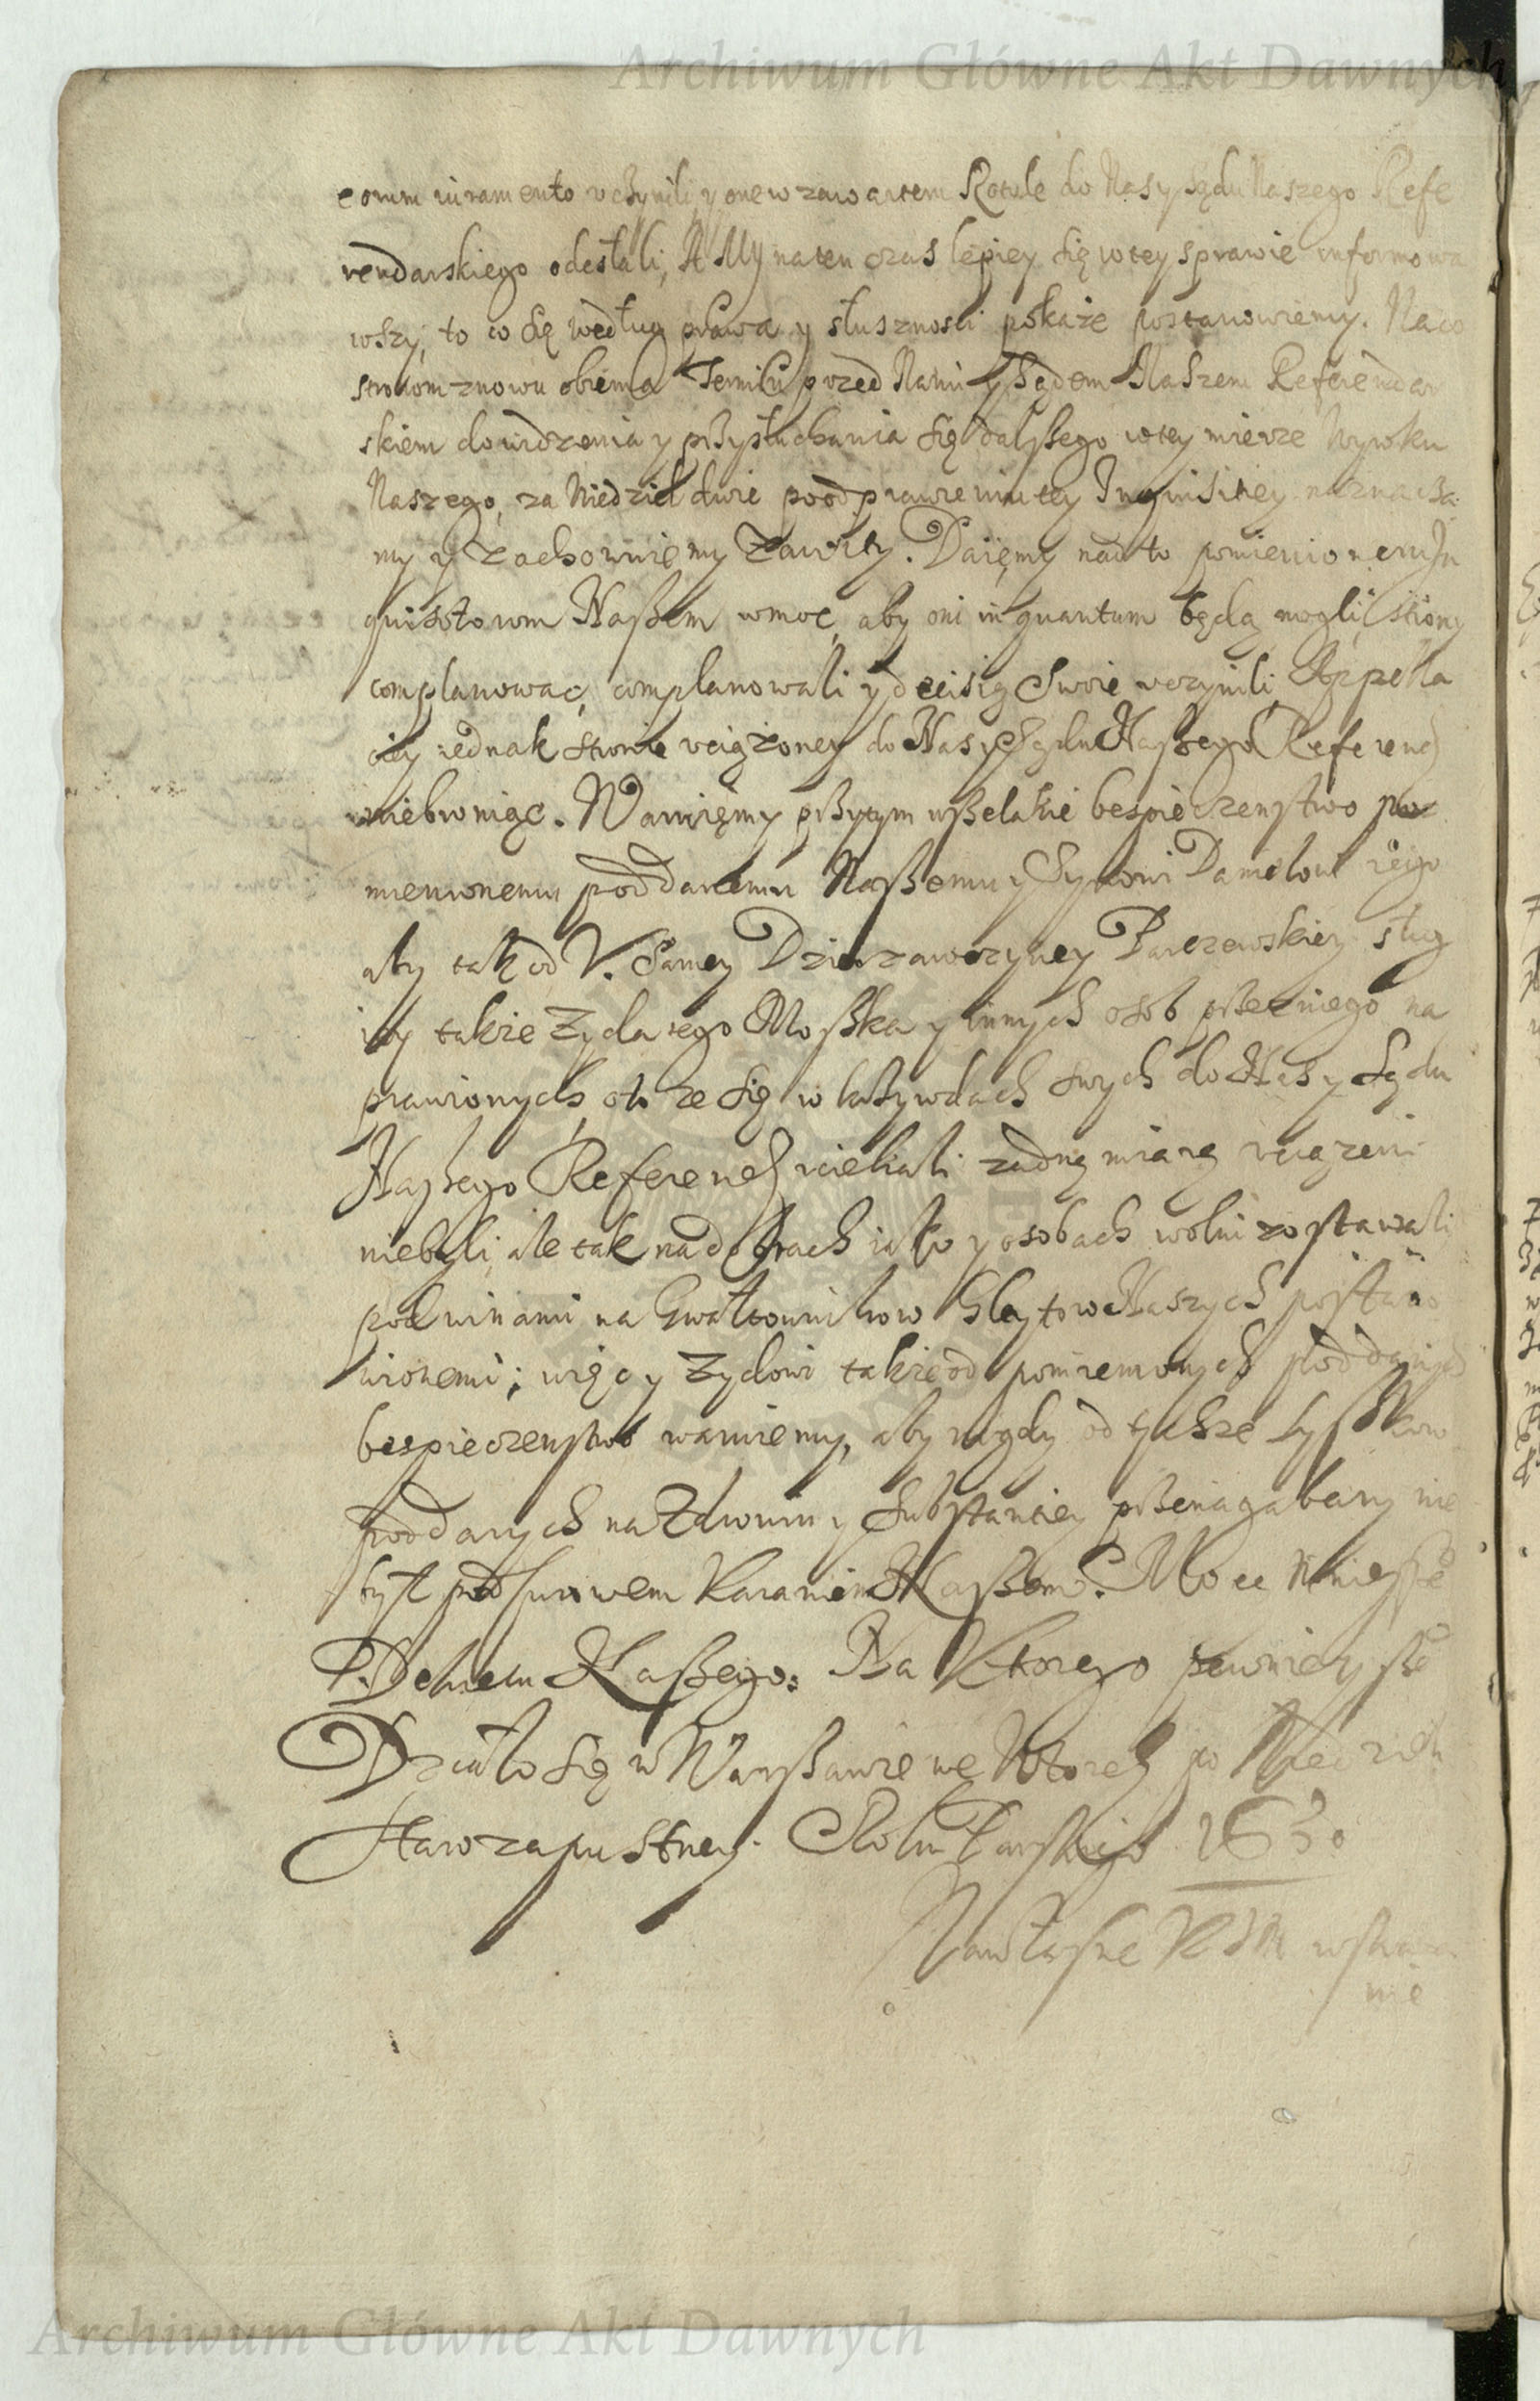 Archiwum Główne Akt Dawnych
eorum iuramento vczynili, y one w zawartem Rotule do Nas y sądu Naszego Refe
rendarskiego odesłali, A My na ten czas lepiey się w tey sprawie informowa
wszy, to co się według prawa y słusznosci pokaże postanowiemy. Na co
stronom znowu obiema Termin przed Nami y Sądem Naszem Referendar
skiem do widzenia y przysłuchania się dalszego w tey mierze Wyroku
Naszego, za Niedziel dwie po odprawieniu tey Inquisitiey naznacza
my y zachowuięmy zawity. Daięmy nad to pomienionem In
quisitorom Naszem w moc, aby oni in quantum będą mogli strony
complanować, complanowali y decisią swoie vczynili, Appella
ciey iednak stronie vciążoney do Nas y Sądu Naszego Referend
niebroniąc. Waruięmy przytym wszelakie bespieczenstwo po
mienionemu poddanemu Naszemu y Synowi Danielowi iego
aby tak od V. Samey Dzierzawczyney Parczewskiey sług
iey także Zyda tego Moszka y innych osob przez niego na
prawionych, oto ze się w krzywdach swych do Nas y Sądu
Naszego Referend vciekali zadną miarą vciązeni
niebyli, ale tak na dobrach iako y osobach wolni zostawali
pod winami na Gwałtownikow Gleytow Naszych postano
wionemi; więc y Zydowi takze od pomienionych poddanych
bespieczenstwo waruiemy, aby nigdy od tychze
poddanych na Zdrowiu y Substantiey przenagabany nie
był pod surowem Karaniem Naszem. Mocą Ninieysze
Dekretu Naszego: Na Ktorego pewnieysze
Działo się w Warszawie we Wtorek po Niedzieli
Starozapustney. Roku Panskiego 1630
Na własne KJM wskaza
nie
Archiwum Główne Akt Dawnych